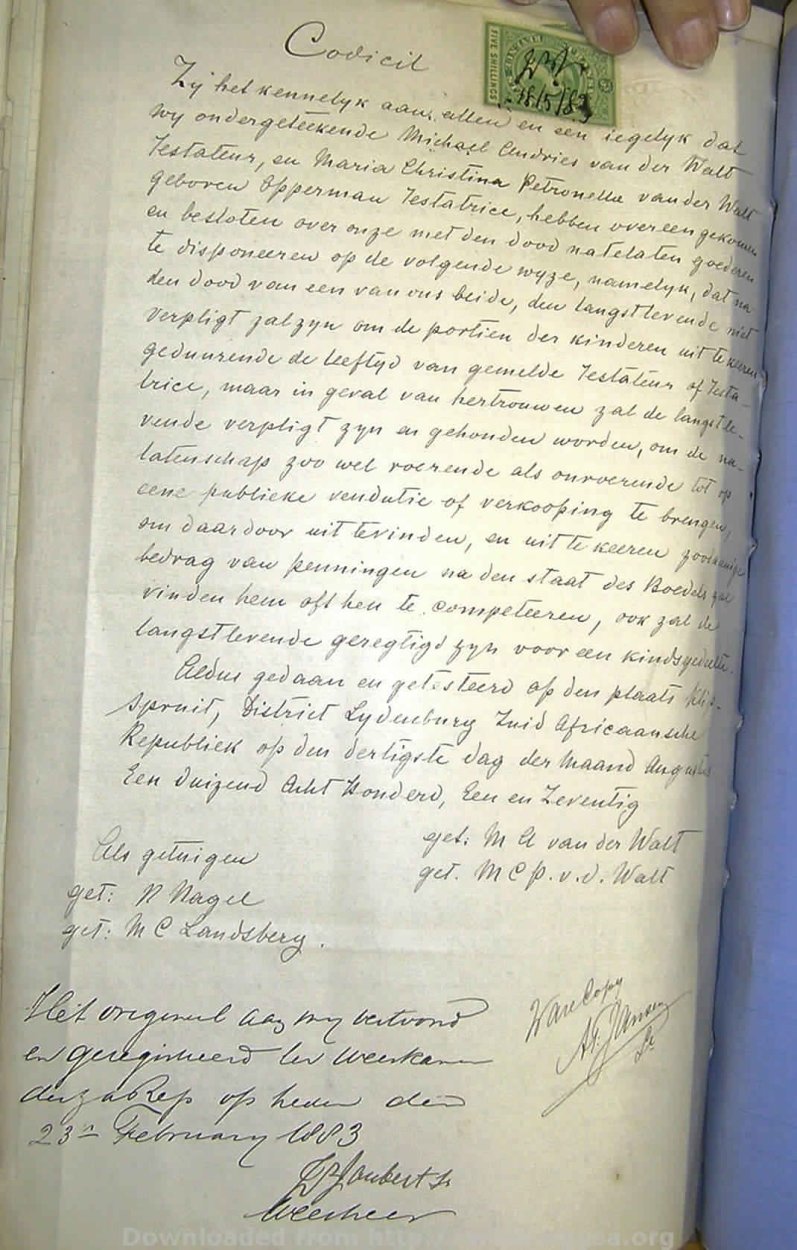 Codicil
FIVE SHILLINGS
18/5/83
Zy het kennelyk aan allen en een iegelyk dat
wy ondergeteekende Michael Andries van der Walt
Testateur, en Maria Christina Petronella van der Walt
geboren Opperman Testatrice, hebben overeengekomen
en besloten over onze met den dood natelaten goederen
te disponeeren op de volgende wyze, namelyk, dat na
den dood van een van ons beide, den langstlevende niet
verpligt zal zyn om de portien der kinderen uit te keeren
geduurende de leeftyd van gemelde Testateur of Testa-
trice, maar in geval van hertrouwen zal de langstle-
vende verpligt zyn en gehouden worden, om de na-
latenschap zoo wel roerende als onroerende tot op
eene publieke vendutie of verkooping te brengen,
om daardoor uit tevinden, en uit te keeren zoodanige
bedrag van penningen na den staat des Boedels zal
vinden hem oft hen te competeeren, ook zal de
langstlevende geregtigd zyn voor een kindsgedeelte.
Aldus gedaan en getesteerd op den plaats Klip-
spruit, District Lydenburg Zuid Africaansche
Republiek op den dertigste dag der Maand Augustus
Een duizend Acht Honderd, Een en Zeventig
get: M A van der Walt
get. M C P. v. d. Walt
Als getuigen
get: N Nagel
get: M C Landsberg.
Ware Copy
Jansen
Sr
Het origineel aan my vertoond
en geregistreerd ter Weeskamer
der Z A Rep op heden den
23n February 1883
Joubert Sr
Weesheer
Downloaded from